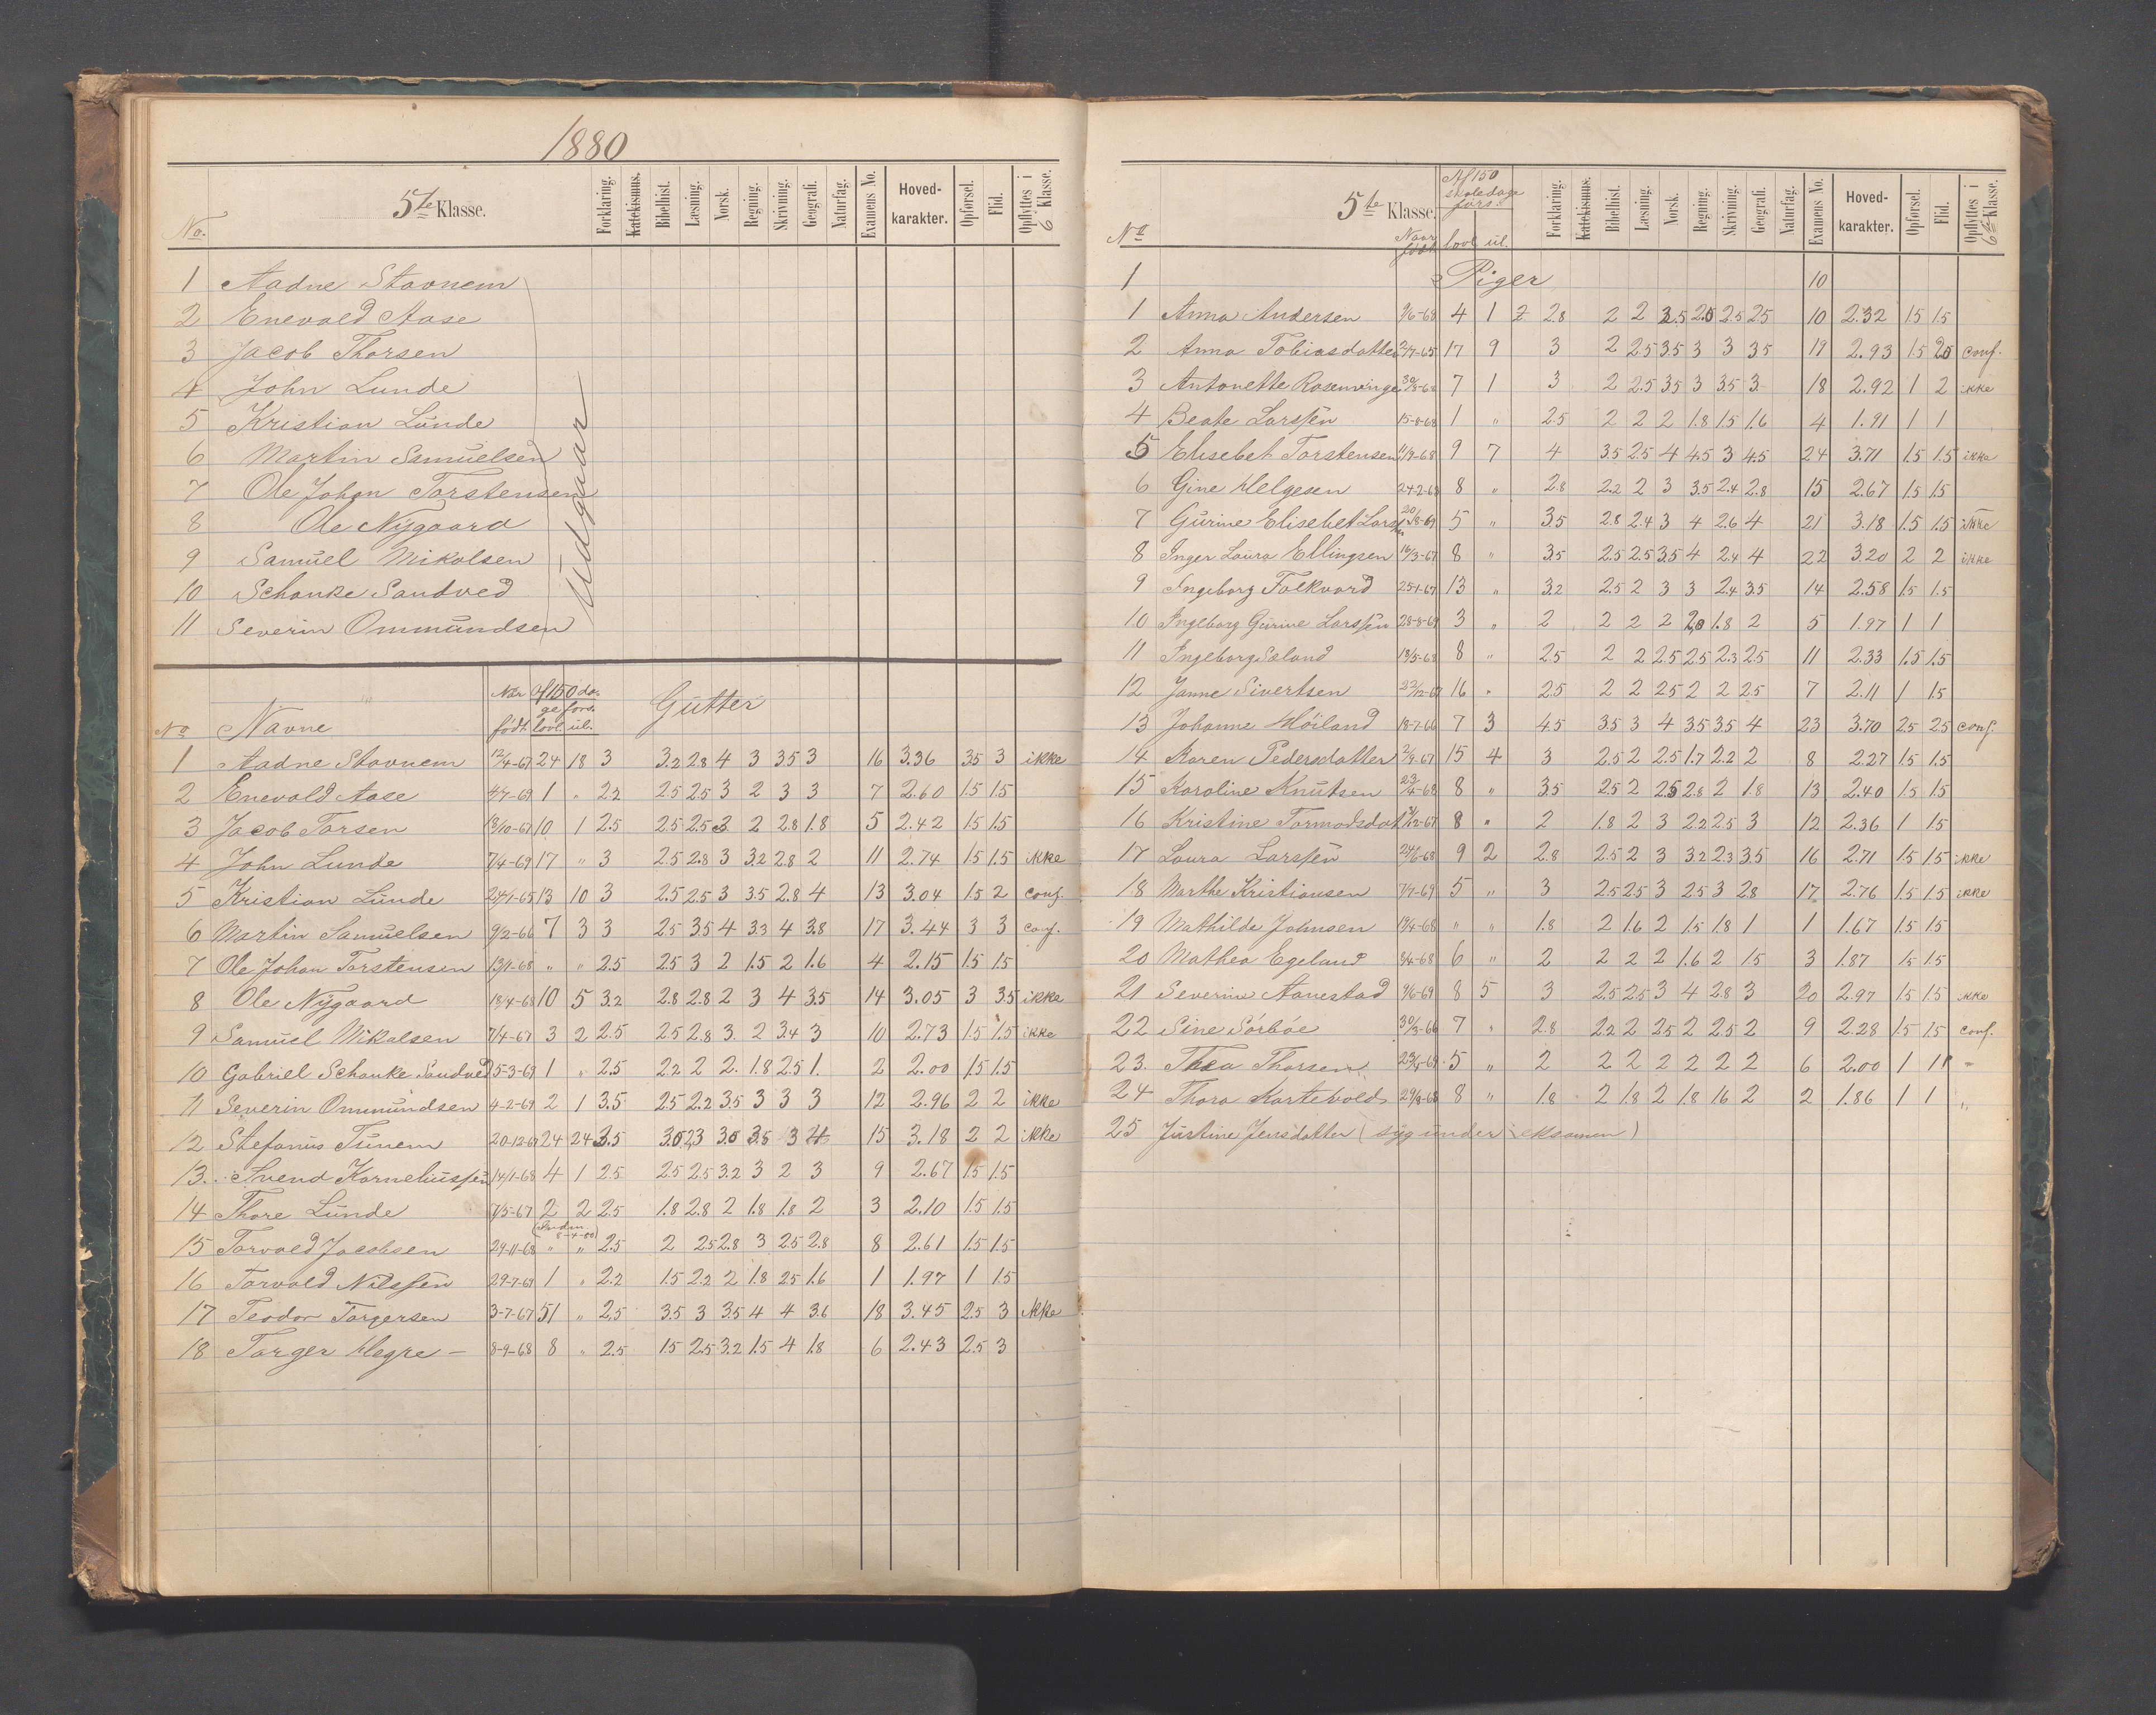 1880
No. 5te Klasse. Forklaring. Katekismus. Bibelhist. Læsning. Norsk. Regning. Skrivning. Geografi. Naturfag. Examens No. Hoved-karakter. Opførsel. Flid. Opflyttes i 6 Klasse.
1 Aadne Stavnem
2 Enevald Aase
3 Jacob Thorsen
4 John Lunde
5 Kristian Lunde
6 Martin Samuelsen
7 Ole Johan Torstensen
8 Ole Nygaard
9 Samuel Mikalsen
10 Schanke Sandved
11 Severin Ommundsen
Udgaar
No Navne Når født Af 150 dage fors. lovl. ul. Gutter
1 Aadne Stavnem 12/4-67 24 18 3 3.2 2.8 4 3 3.5 3 16 3.36 3.5 3 ikke
2 Enevald Aase 4/7-69 1 " 2.2 2.5 2.5 3 2 3 3 7 2.60 1.5 1.5
3 Jacob Tarsen 13/10-67 10 1 2.5 2.5 2.5 3 2 2.8 1.8 5 2.42 1.5 1.5
4 John Lunde 7/4-69 17 " 3 2.5 2.8 3 3.2 2.8 2 11 2.74 1.5 1.5 ikke
5 Kristian Lunde 24/1-65 13 10 3 2.5 2.5 3 3.5 2.8 4 13 3.04 1.5 2 conf.
6 Martin Samuelsen 9/2-66 7 3 3 2.5 3.5 4 3.3 4 3.8 17 3.44 3 3 conf.
7 Ole Johan Torstensen 13/1-68 " " 2.5 2.5 3 2 1.5 2 1.6 4 2.15 1.5 1.5
8 Ole Nygaard 18/4-68 10 5 3.2 2.8 2.8 2 3 4 3.5 14 3.05 3 3.5 ikke
9 Samuel Mikalsen 7/4-67 3 2 2.5 2.5 2.8 3. 2 3.4 3 10 2.73 1.5 1.5 ikke
10 Gabriel Schanke Sandved 5-3-69 1 " 2.5 2.2 2 2. 1.8 2.5 1. 2 2.00 1.5 1.5
11 Severin Ommundsen 4-2-69 2 1 3.5 2.5 2.2 3.5 3 3 3 12 2.96 2 2 ikke
12 Stefanus Tunem 20-12-67 24 24 3.5 3.0 2.3 3.0 3.5 3 4 15 3.18 2 2 ikke
13. Svend Korneliussen 14/1-68 4 1 2.5 2.5 2.5 3.2 3 2 3 9 2.67 1.5 1.5
14 Thore Lunde 7/5-67 2 2 2.5 1.8 2.8 2 1.8 1.8 2 3 2.10 1.5 1.5
15 Torvald Jacobsen 29-11-68 " " 2.5 2 2.5 2.8 3 2.5 2.8 8 2.61 1.5 1.5
16 Torvald Nilssen 29-7-69 1 " 2.2 1.5 2.2 2 1.8 2.5 1.6 1 1.97 1 1.5
17 Teodor Torgersen 3-7-67 51 " 2.5 3.5 3 3.5 4 4 3.6 18 3.45 2.5 3 ikke
18 Torger Hegre – 8-9-68 8 " 2.5 1.5 2.5 3.2 1.5 4 1.8 6 2.43 2.5 3
No 5te Klasse. Naar født Af 150 skoledage fors. lovl. ul. Forklaring. Katekismus. Bibelhist. Læsning. Norsk. Regning. Skrivning. Geografi. Naturfag. Examens No. Hoved-karakter. Opførsel. Flid. Opflyttes i 6te Klasse.
1 Piger 10
1 Anna Andersen 9/6-68 4 1 2 2.8 2 2 3.5 2.0 2.5 2.5 10 2.32 1.5 1.5
2 Anna Tobiasdatter 2/7-65 17 9 3 2 2.5 3.5 3 3 3.5 19 2.93 1.5 2.0 conf.
3 Antonette Rosenvinge 30/3-68 7 1 3 2 2.5 3.5 3 3.5 3 18 2.92 1 2 ikke
4 Beate Larssen 15-8-68 1 " 2.5 2 2 2 1.8 1.5 1.6 4 1.91 1 1
5 Elisebet Torstensen 11/9-68 9 7 4 3.5 2.5 4 4.5 3 4.5 24 3.71 1.5 1.5 ikke
6 Gine Helgesen 24-2-68 8 " 2.8 2.2 2 3 3.5 2.4 2.8 15 2.67 1.5 1.5
7 Gurine Elisebet Larssen 20/8-69 5 " 3.5 2.8 2.4 3 4 2.6 4 21 3.18 1.5 1.5 ikke
8 Inger Laura Ellingsen 16/3-67 8 " 3.5 2.5 2.5 3.5 4 2.4 4 22 3.20 2 2 ikke
9 Ingeborg Folkvord 25-1-67 13 " 3.2 2.5 2 3 3 2.4 3.5 14 2.58 1.5 1.5
10 Ingeborg Gurine Larssen 28-8-69 3 " 2 2 2 2 2.0 1.8 2 5 1.97 1 1
11 Ingeborg Sæland 13/5-68 8 " 2.5 2 2 2.5 2.5 2.3 2.5 11 2.33 1.5 1.5
12 Janne Sivertsen 22/12-67 16 " 2.5 2 2 2.5 2 2 2.5 7 2.11 1 1.5
13 Johanne Høiland 18-7-66 7 3 4.5 3.5 3 4 3.5 3.5 4 23 3.70 2.5 2.5 conf.
14 Karen Pedersdatter 2/9-67 15 4 3 2.5 2 2.5 1.7 2.2 2 8 2.27 1.5 1.5
15 Karoline Knutsen 23/4-68 8 " 3.5 2.5 2 2.5 2.8 2 1.8 13 2.40 1.5 1.5
16 Kristine Tormodsdat 31/12-67 8 " 2 1.8 2 3 2.2 2.5 3 12 2.36 1 1.5
17 Laura Larssen 24/6-68 9 2 2.8 2.5 2 3 3.2 2.3 3.5 16 2.71 1.5 1.5 ikke
18 Marthe Kristiansen 7/7-69 5 " 3 2.5 2.5 3 2.5 3 2.8 17 2.76 1.5 1.5 ikke
19 Mathilde Johnsen 19/4-68 " " 1.8 2 1.6 2 1.5 1.8 1 1 1.67 1.5 1.5
20 Mathea Egeland 8/4-68 6 " 2 2 2 2 1.6 2 1.5 3 1.87 1.5 1.5
21 Severine Aanestad 9/6-69 8 5 3 2.5 2.5 3 4 2.8 3 20 2.97 1.5 1.5 ikke
22 Sine Sørbøe 30/3-66 7 " 2.8 2.2 2 2.5 2 2.5 2 9 2.28 1.5 1.5 conf.
23. Thea Thorsen 5 " 2 2 2 2 2 2 2 6 2.00 1 1 "
24 Thora Kartevold 29/8-68 8 " 1.8 2 1.8 2 1.8 1.6 2 2 1.86 1 1 "
25 Justine Jensdatter (syg under eksamen)